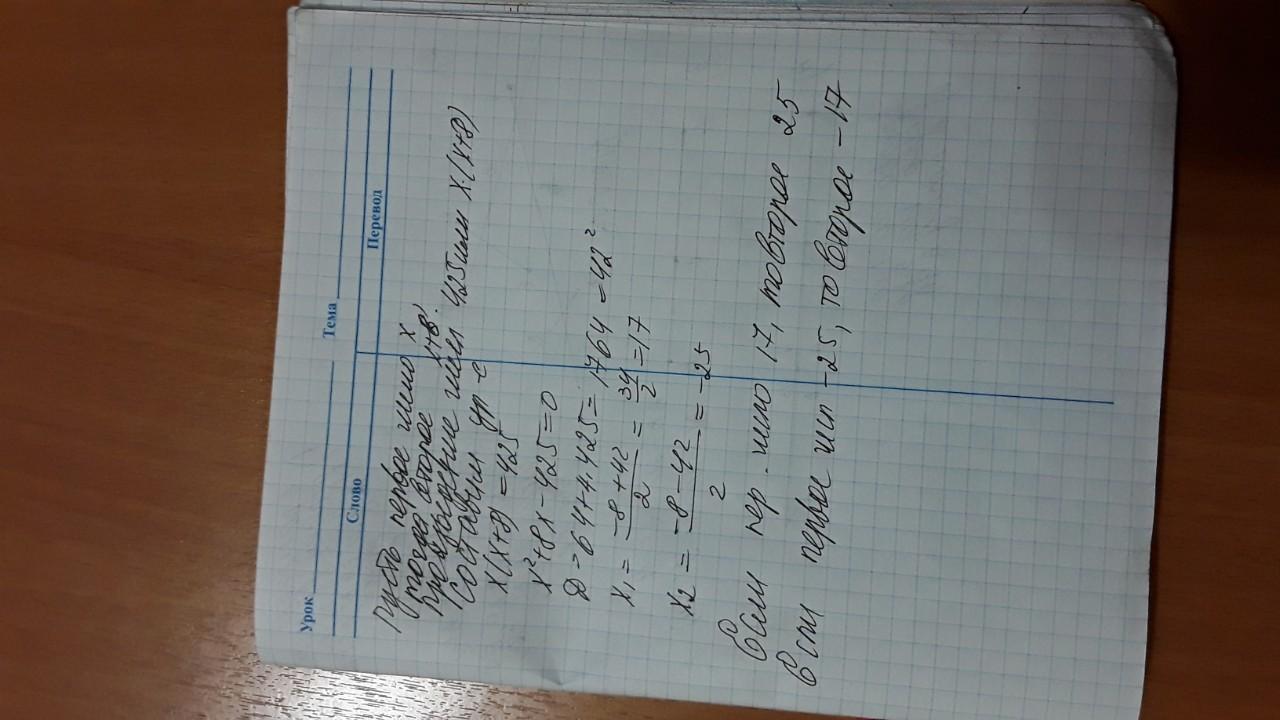 Урок Тема
Слово Перевод
Пусть первое число x
тогда второе x+8.
Произведение чисел 425 или x·(x+8)
Составим ур-е
x(x+8)=425
x²+8x-425=0
D=64+4·425=1764=42²
x₁ = (-8+42)/2 = 34/2 = 17
x₂ = (-8-42)/2 = -25
Если пер. число 17, то второе 25
Если первое -25, то второе -17